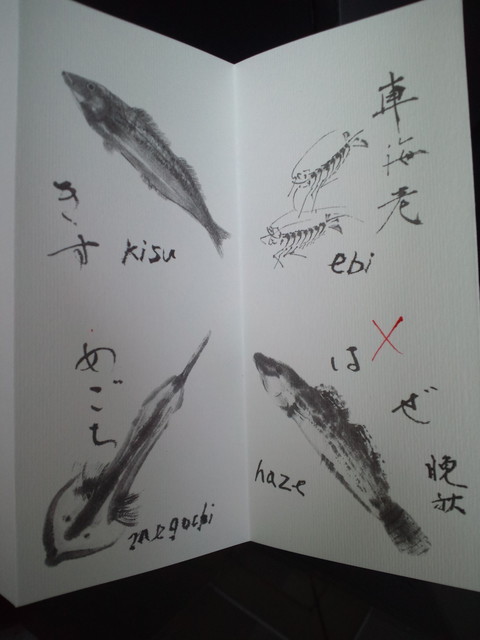 きす
kisu
車海老
ebi
めごち
megochi
はぜ
haze
晩秋